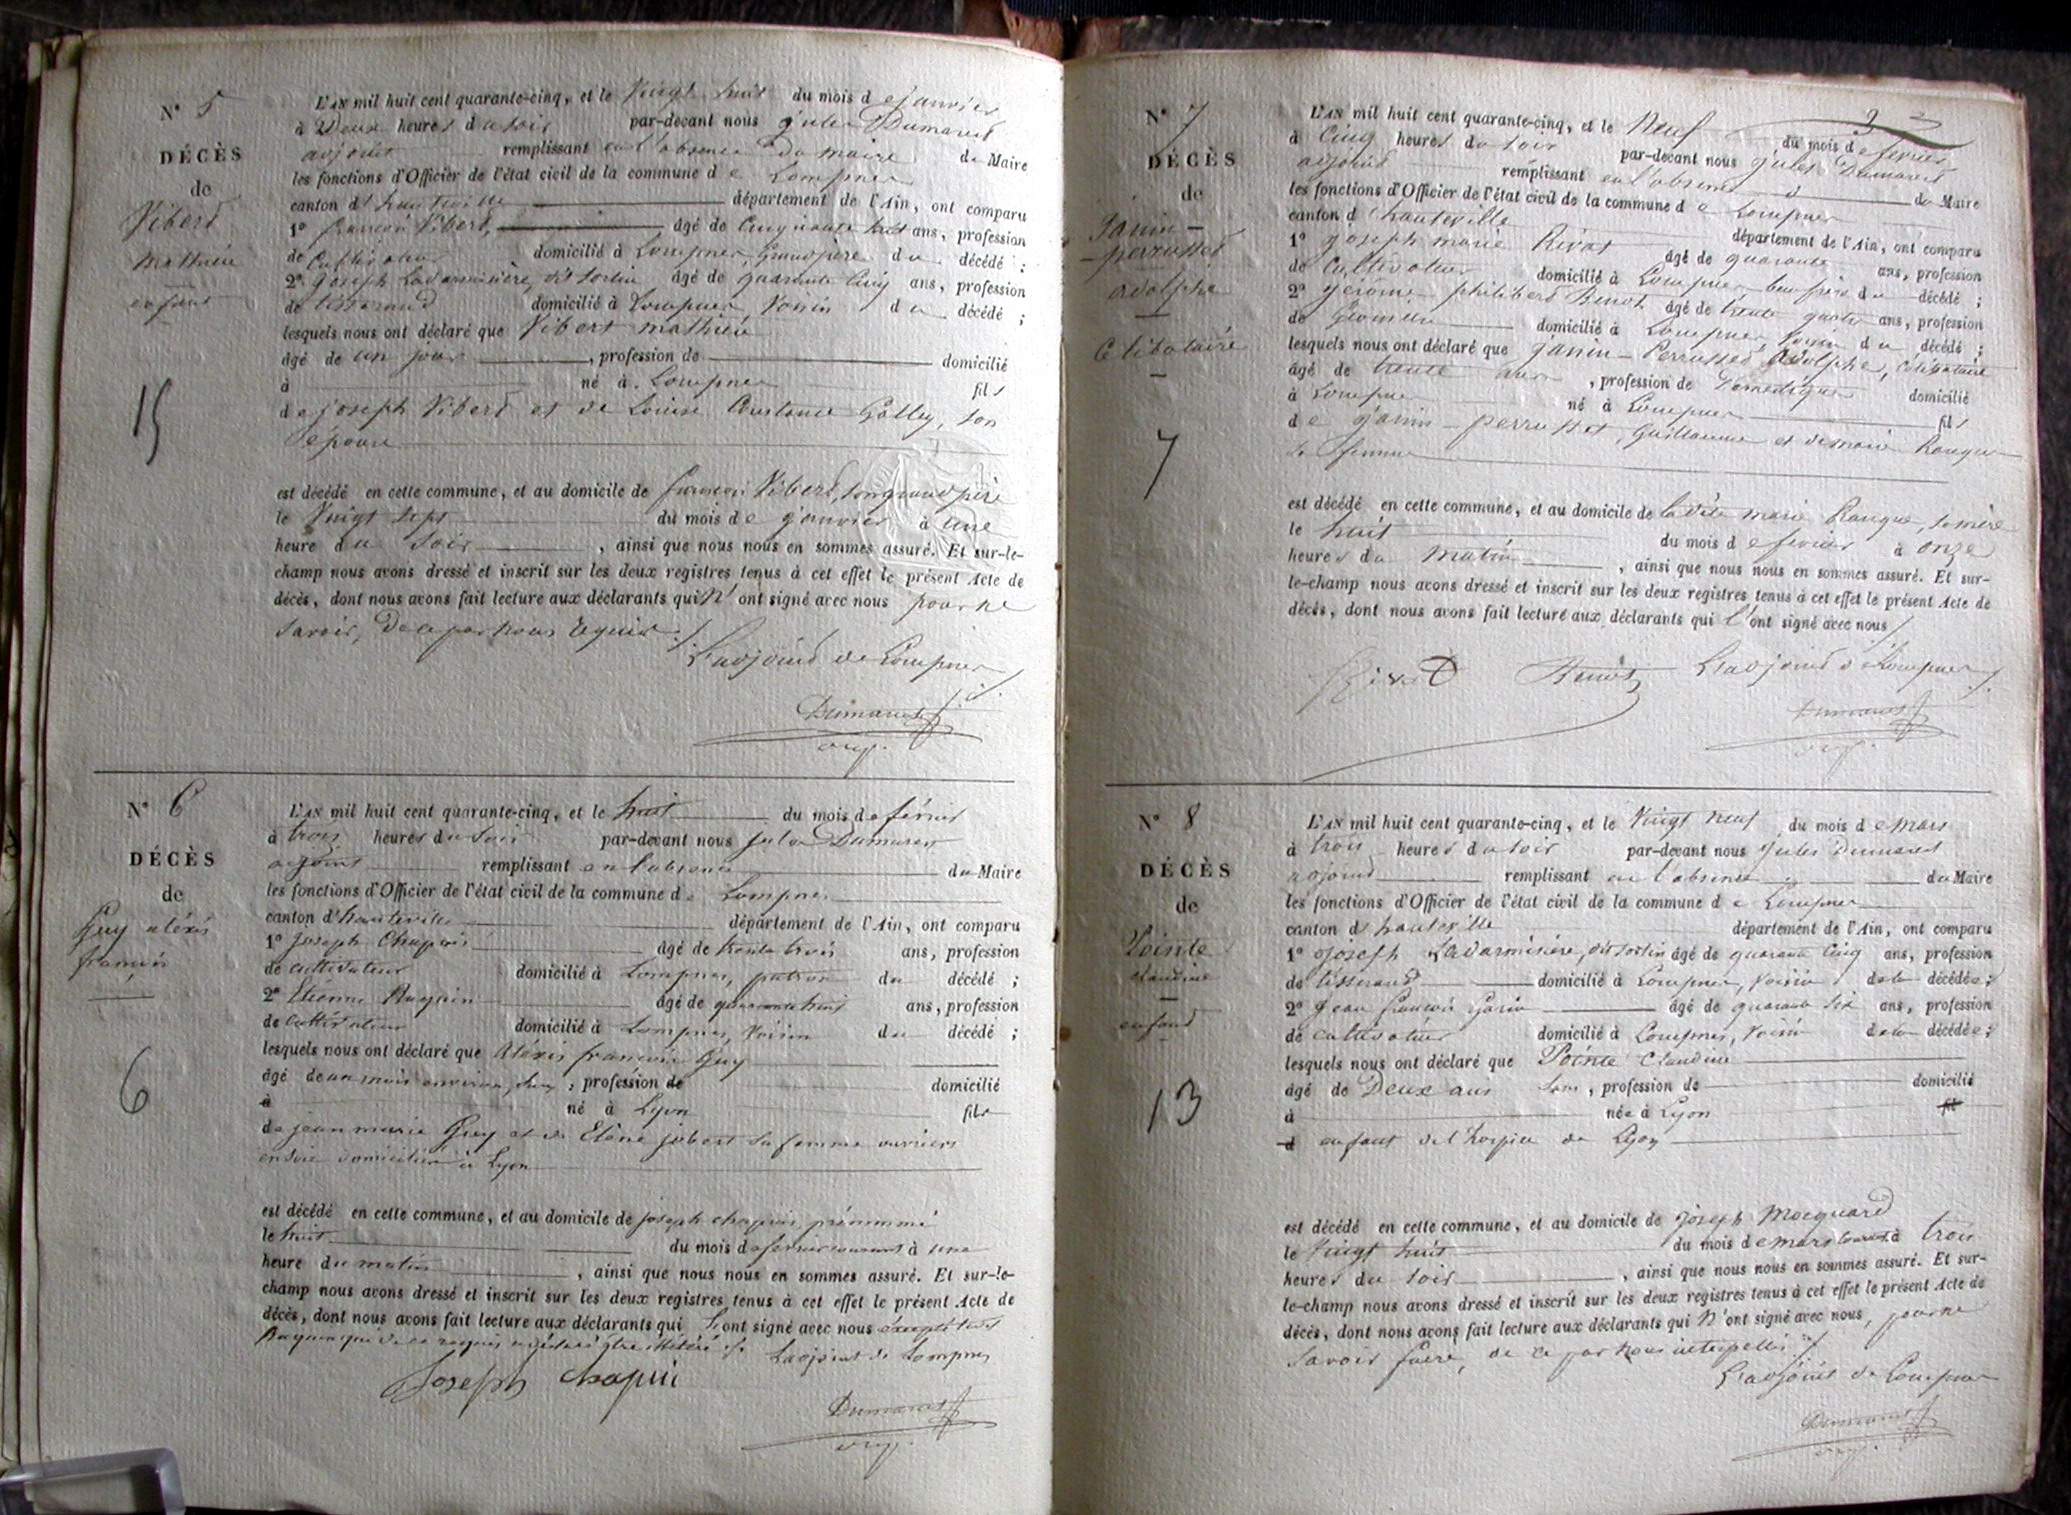 N° 5
DÉCÈS
de
Vibert
Mathieu
enfant
15
L'AN mil huit cent quarante-cinq, et le Vingt huit du mois de janvier
à Deux heures du soir par-devant nous jules Dumarest
adjoint remplissant en l'absence du maire du Maire
les fonctions d'Officier de l'état civil de la commune de Lompnes
canton d'hauteville département de l'Ain, ont comparu
1° françois Vibert, âgé de Cinquante huit ans, profession
de Cultivateur domicilié à Lompnes, Grand père du décédé ;
2° joseph Ladarminière, dit Sorlin âgé de quarante Cinq ans, profession
de tisserand domicilié à Lompnes, Voisin du décédé ;
lesquels nous ont déclaré que Vibert mathieu
âgé de un jour , profession de domicilié
à né à Lompnes fils
de joseph Vibert et de Louise Constance Golley, son
épouse
est décédé en cette commune, et au domicile de françois Vibert, son grand père
le Vingt Sept du mois de janvier à une
heure du soir , ainsi que nous nous en sommes assuré. Et sur-le-
champ nous avons dressé et inscrit sur les deux registres tenus à cet effet le présent Acte de
décès, dont nous avons fait lecture aux déclarants qui N'ont signé avec nous pour ne
savoir, de ce par nous requis
L'adjoint de Lompnes
Dumarest
N° 6
DÉCÈS
de
Guy aléxis
françois
6
L'AN mil huit cent quarante-cinq, et le huit du mois de février
à trois heures du soir par-devant nous jules Dumarest
adjoint remplissant en l'absence du Maire
les fonctions d'Officier de l'état civil de la commune de Lompnes
canton d'hauteville département de l'Ain, ont comparu
1° Joseph Chapuis âgé de trente trois ans, profession
de cultivateur domicilié à Lompnes, patron du décédé ;
2° Etienne Ruguin âgé de quarante huit ans, profession
de cultivateur domicilié à Lompnes, Voisin du décédé ;
lesquels nous ont déclaré que Aléxis françois Guy
âgé de un mois environ , profession de domicilié
à né à Lyon fils
de jean marie Guy et de Elène jobert sa femme ouvriers
en soie domiciliés à Lyon
est décédé en cette commune, et au domicile de joseph chapuis prénommé
le huit du mois de fevrier courant à une
heure du matin , ainsi que nous nous en sommes assuré. Et sur-le-
champ nous avons dressé et inscrit sur les deux registres tenus à cet effet le présent Acte de
décès, dont nous avons fait lecture aux déclarants qui ont signé avec nous excepté
qui de ce requis a déclaré être illétéré
L'adjoint de Lompnes
Joseph chapui
Dumarest
3
N° 7
DÉCÈS
de
Janin-
perrusset
adolphe
Célibataire
7
L'AN mil huit cent quarante-cinq, et le Neuf du mois de fevrier
à Cinq heures du soir par-devant nous jules Dumarest
adjoint remplissant en l'absence du Maire
les fonctions d'Officier de l'état civil de la commune de Lompnes
canton d'hauteville département de l'Ain, ont comparu
1° joseph marie Rivat âgé de quarante ans, profession
de Cultivateur domicilié à Lompnes, beau frère du décédé ;
2° jerôme philibert Benoit âgé de trente quatre ans, profession
de Géomètre domicilié à Lompnes, voisin du décédé ;
lesquels nous ont déclaré que Janin-Perrusset adolphe, Célibataire
âgé de trente ans , profession de Domestique domicilié
à Lompnes né à Lompnes fils
de Janin-perrusset, Guillaume et de marie Rougue
sa femme
est décédé en cette commune, et au domicile de la dite marie Rougue, sa mère
le huit du mois de fevrier à onze
heures du Matin , ainsi que nous nous en sommes assuré. Et sur-
le-champ nous avons dressé et inscrit sur les deux registres tenus à cet effet le présent Acte de
décès, dont nous avons fait lecture aux déclarants qui l'ont signé avec nous
Rivat Benoit L'adjoint de Lompnes
Dumarest
N° 8
DÉCÈS
de
Pointe
claudine
enfant
13
L'AN mil huit cent quarante-cinq, et le Vingt neuf du mois de Mars
à trois heures du soir par-devant nous Jules Dumarest
adjoint remplissant en l'absence du Maire
les fonctions d'Officier de l'état civil de la commune de Lompnes
canton d'hauteville département de l'Ain, ont comparu
1° joseph Ladarminière, dit sorlin âgé de quarante Cinq ans, profession
de tisserand domicilié à Lompnes, Voisin de la décédée ;
2° jean françois Garin âgé de quarante Six ans, profession
de cultivateur domicilié à Lompnes, Voisin de la décédée ;
lesquels nous ont déclaré que Pointe Claudine
âgé de Deux ans sans , profession de domicilié
à née à Lyon fil
d enfant de l'hospice de Lyon
est décédé en cette commune, et au domicile de joseph Mocquard
le Vingt huit du mois de Mars courant à trois
heures du soir , ainsi que nous nous en sommes assuré. Et sur-
le-champ nous avons dressé et inscrit sur les deux registres tenus à cet effet le présent Acte de
décès, dont nous avons fait lecture aux déclarants qui N'ont signé avec nous, pour ne
savoir faire, de ce par nous interpellés
L'adjoint de Lompnes
Dumarest